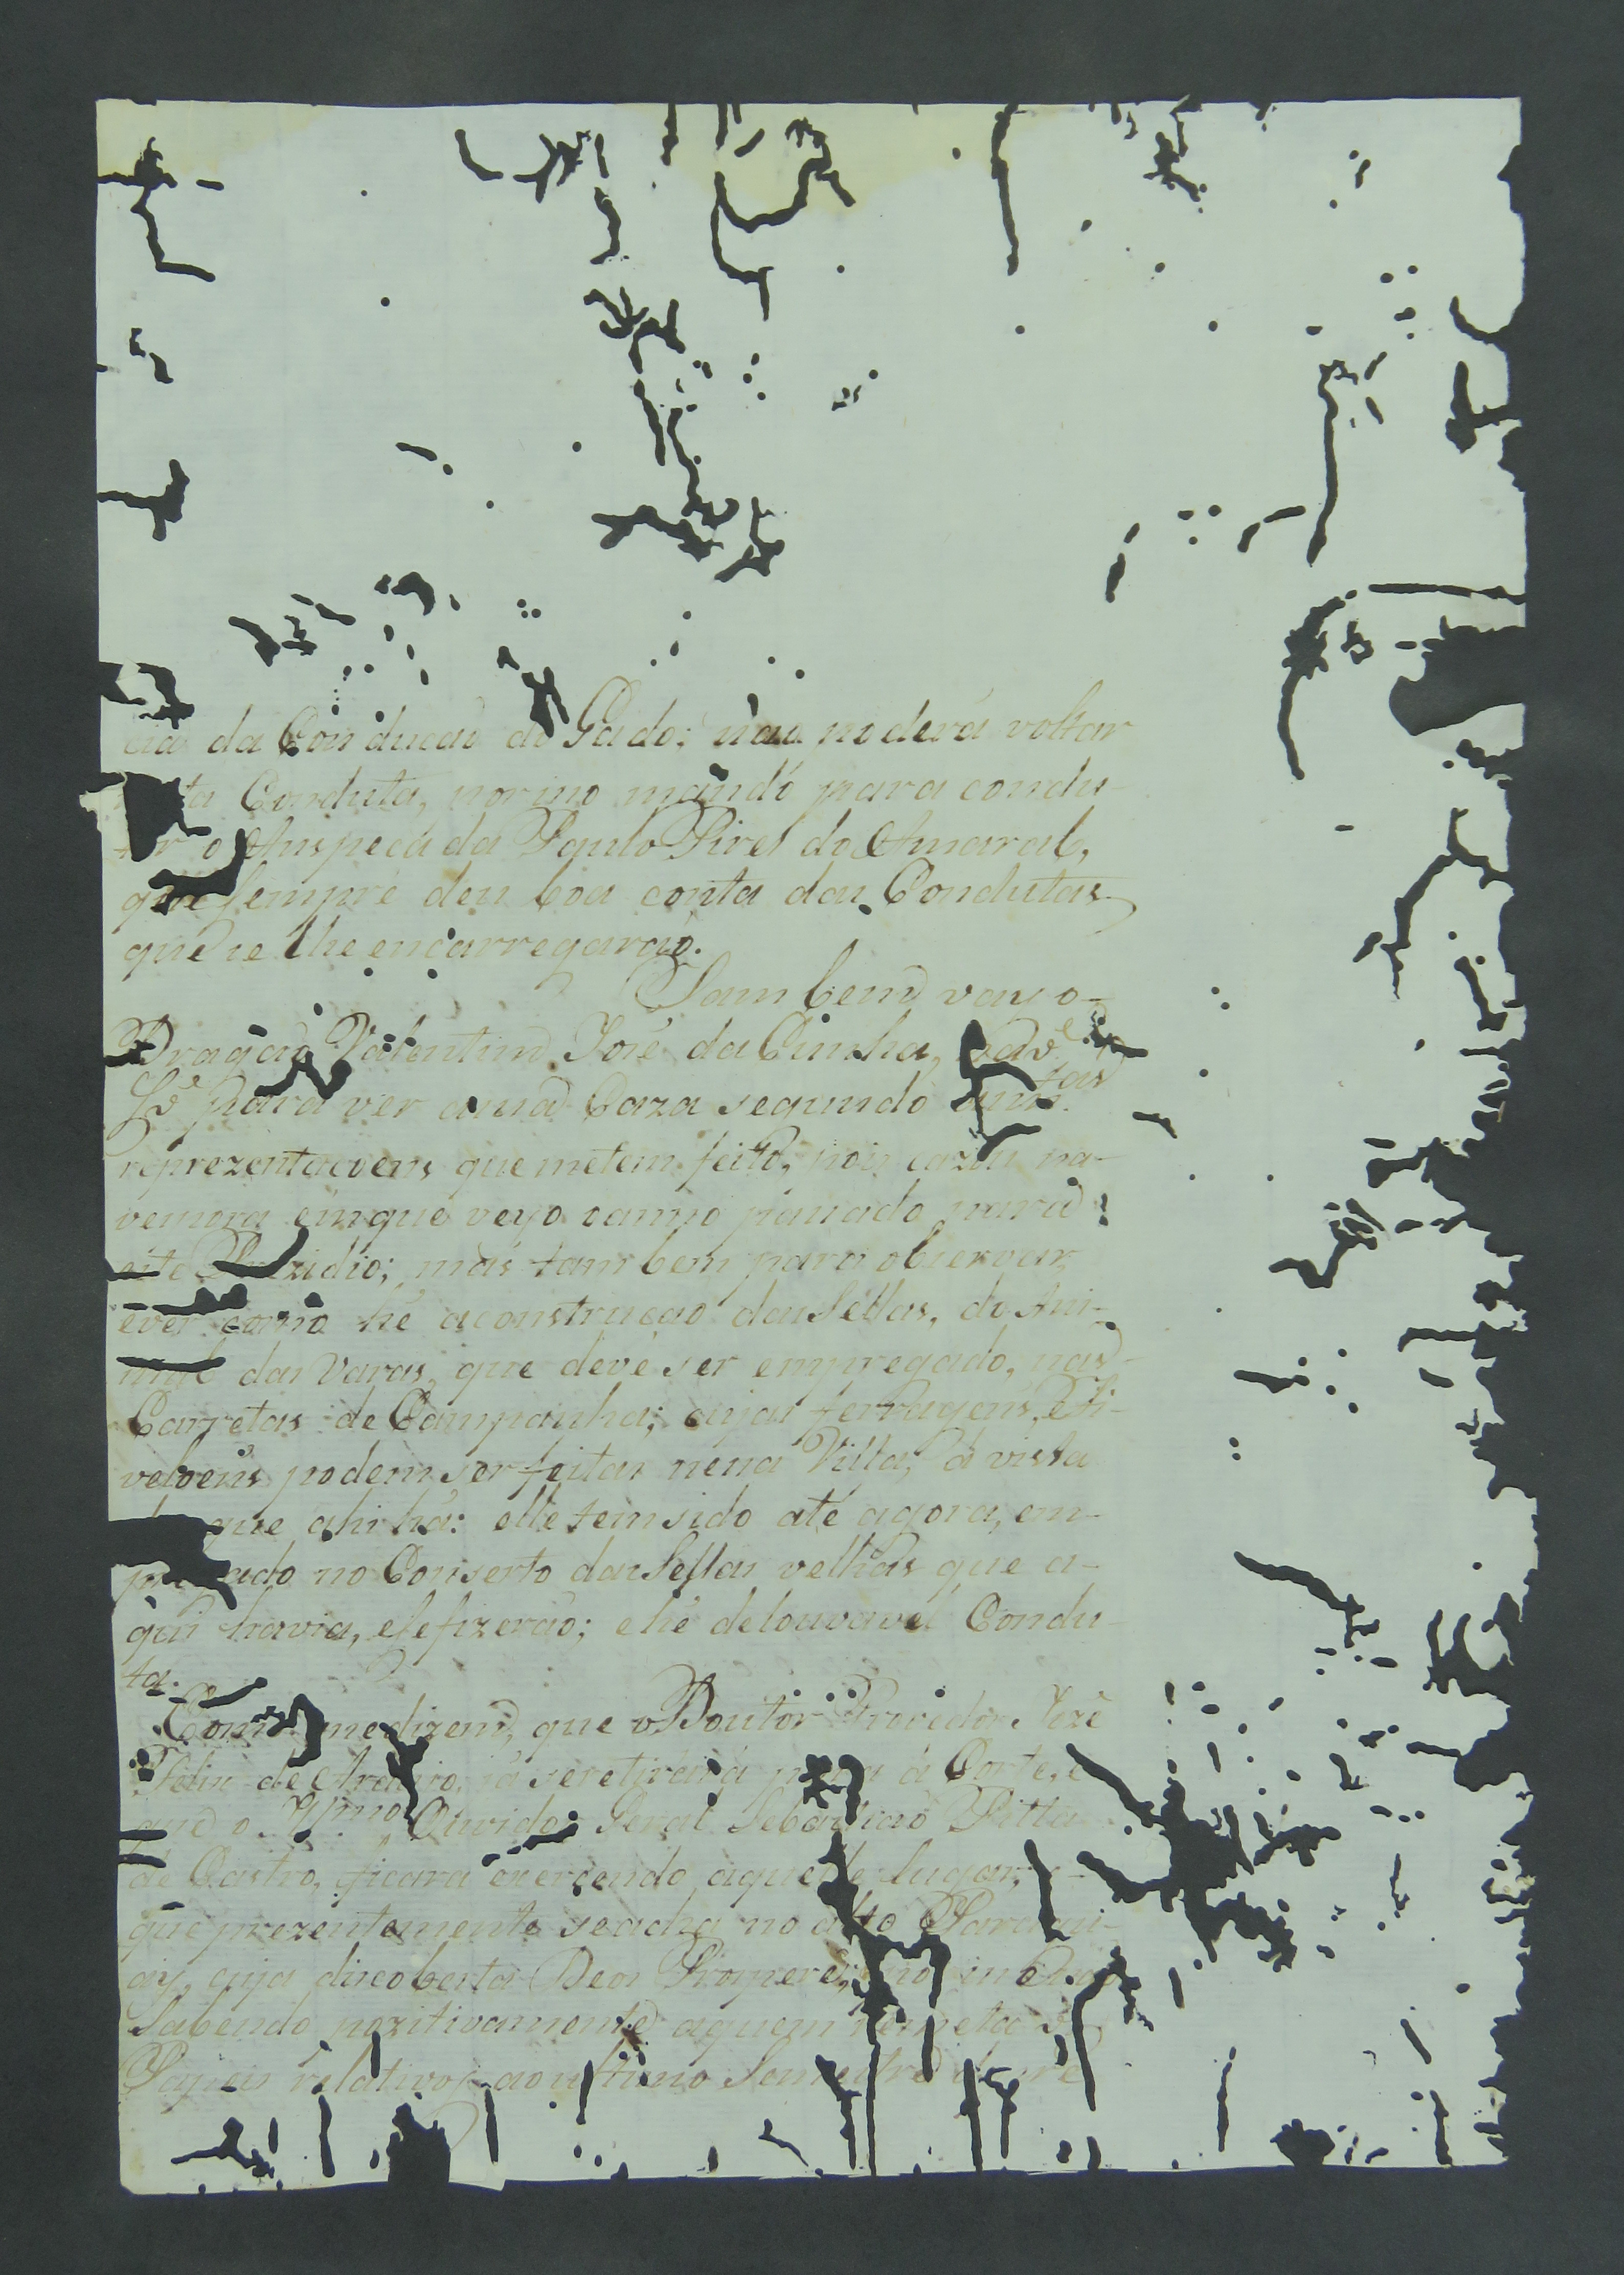 cia da Conducaõ do Gado; naõ poderá voltar
ta Conduta, porisso mando para condu-
tor o Anspeçada Paulo Pires do Amaral,
que sempre deu boa conta das Condutas
que se lhe encarregaraõ.
Tambem vay o
Dragaõ Valentim José da Cunha,
para ver a sua Caza segundo
reprezentaçoens que me tem feito, pois cazou na
vespora em que veyo o anno passado para
este Prezidio; mas tambem para observar,
e ver como hé a construçaõ das Sellas, do Ani-
mal das Varas, que deve ser empregado, nas
Carretas de Campanha; cujas ferragens, e Fi-
veloens podem ser feitas nessa Villa, á vista
que ahi há: elle tem sido até agora, em-
pregado no Conserto das Sellas velhas que a-
qui havia, e se fizeraõ; e hé de louvavel Condu-
ta.
Como me dizem, que o Doutor Provedor Jozé
de Araujo, já se retirára para a Corte, e
que o Ouvidor Geral Sebastiaõ Pitta
de Castro, ficara exercendo aquelle lugar,
que prezentemente se acha no alto Paragai-
ay, cuja discoberta Deos Prospere,
Sabendo pozitivamente aquem remeta os
Papeis relativos ao ultimo Semestre